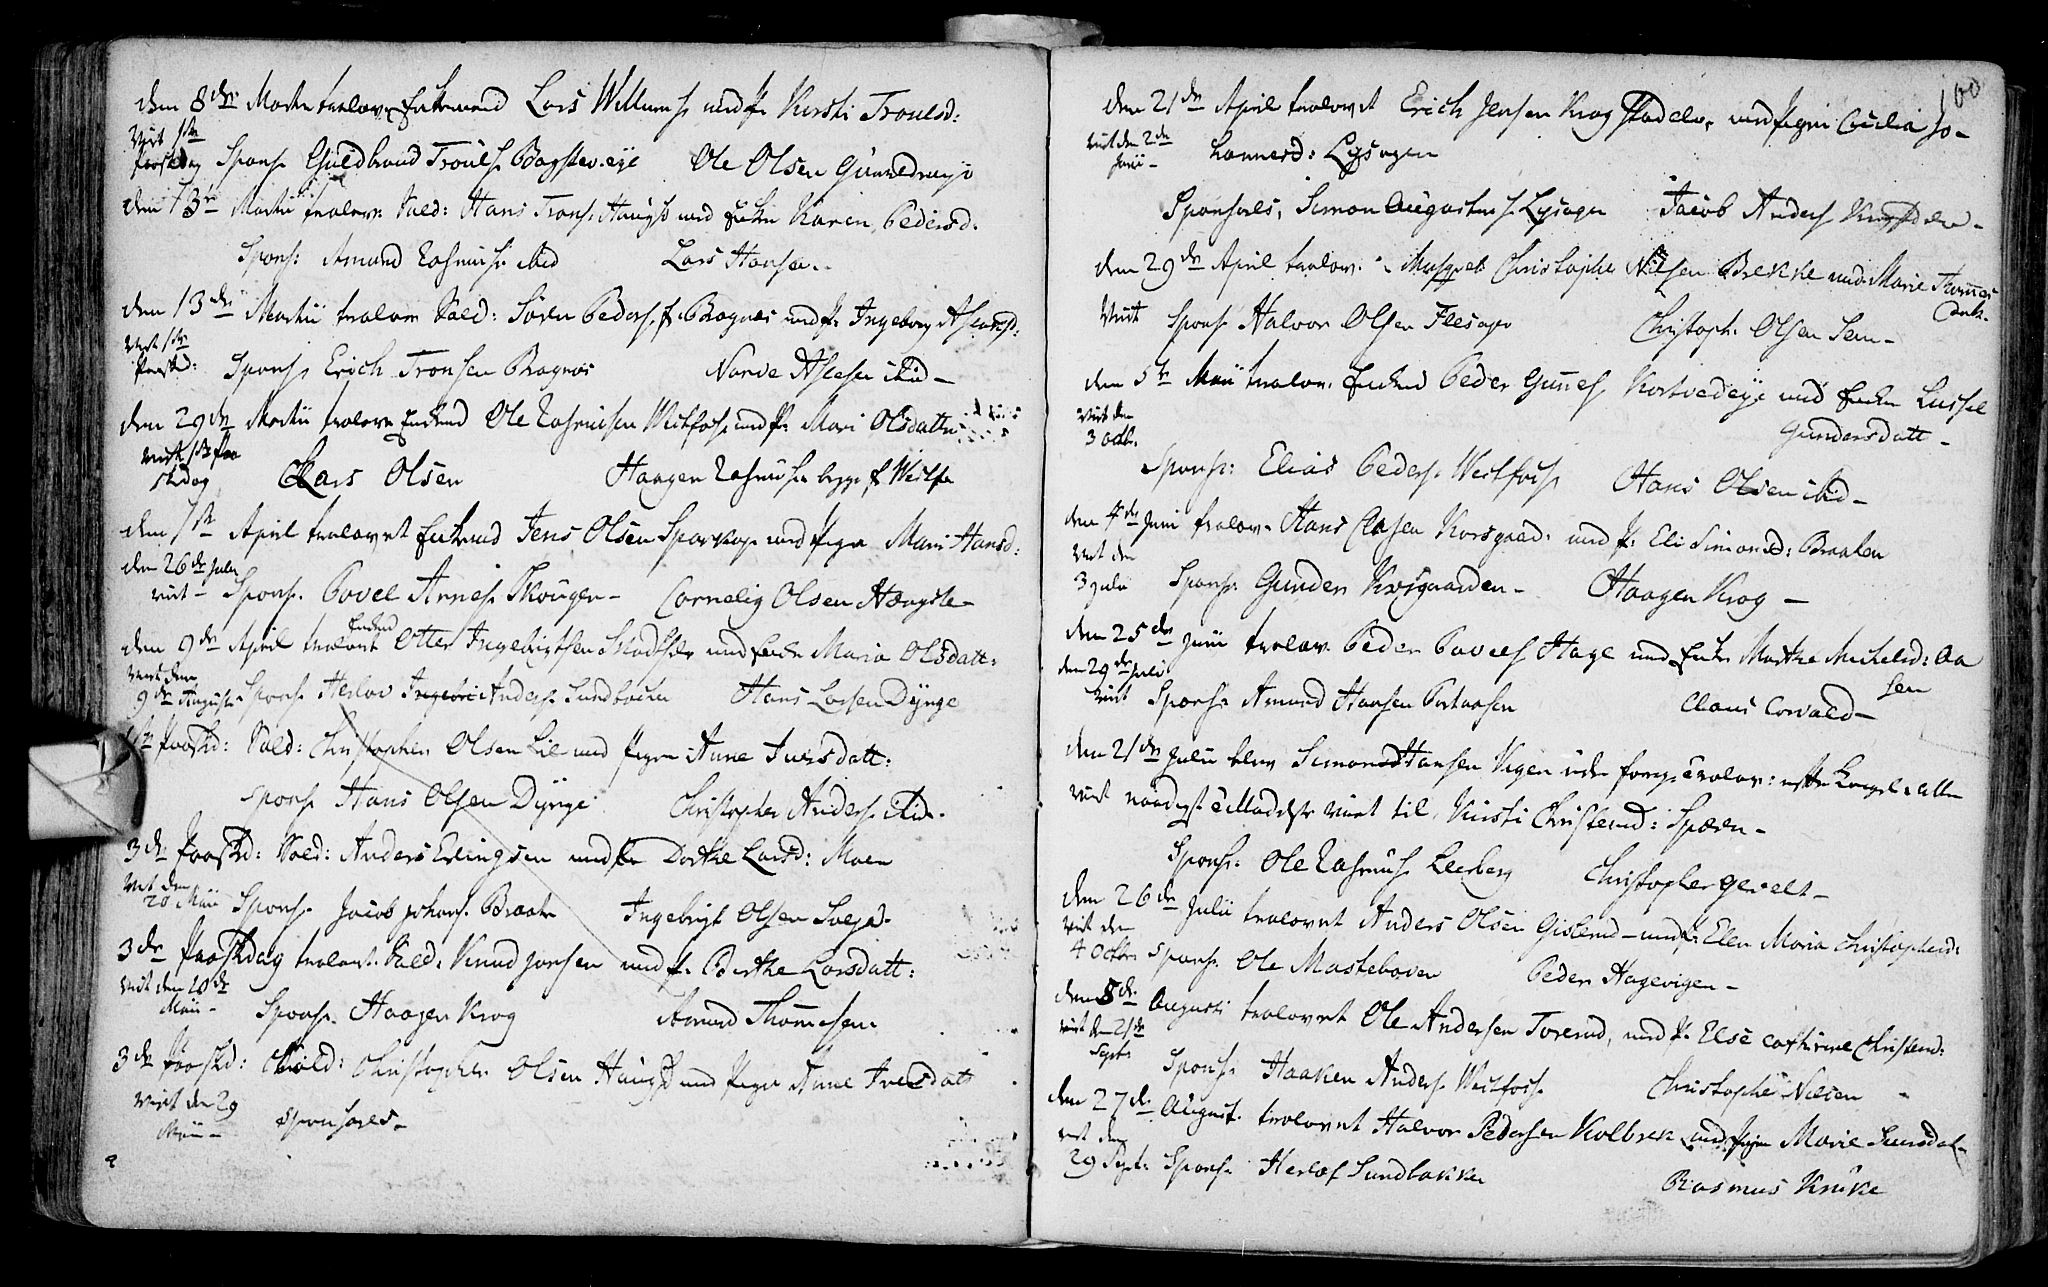 den 8de Martii trolov. Enkemand Lars Willumsen med P. Kirsti Troulsd:
Viet 1ste
Paaskedag Spons. Guldbrand Trouls. Bagsteveye Ole Olsen Gunildrueye
den 13de Martii trolov. Sold: Hans Trons. Haugs med Enke Karen Pedersd.
Spons: Amund Rasmus. ibid Lars Hansen.
den 13de Martii trolov. Sold: Søren Peders. f. Bagnes med P. Ingeborg Aslesd:
Viet 1ste
Paaskd: Spons. Erich Tronsen Ragnes Narve Aslesen ibid
den 29de Martii trolov. Enkemd Ole Rasmusen Westfos. med P. Mari Olsdatter
Viet 1ste Paa
skdag Lars Olsen Haagen Rasmus. begge f. Westfos
den 7de April trolovet Enkemd Jens Olsen Sparkop med Pigen Mari Hansd:
den 26de Julii
viet Spons. Povel Arnes. Skouger Cornelig Olsen Hængsle
den 9de April trolovet Enkmd Otter Ingebrigtsen Skodtselv med Enke Maria Olsdatt:
Viet den
9de August Spons. Herlov Anders. Sundbacken Hans Larsen Dynge
1ste Paaskd: Sold: Christopher Olsen Lie med Pigen Anne Iversdatt:
Spons. Hans Olsen Dynge Christopher Anders. ibid.
3de Paaskd: Sold: Anders Erlingsen med P. Dorthe Larsd: Moen
Viet den
20 Maii Spons. Jacob Johans. Braaten Ingebrigt Olsen Solfos.
3de Paaskdag trolovt Sold. Knud Jonsen med P. Berthe Larsdatt:
Viet den 20de
Maii Spons. Haagen Krog Amund Thomesen
3de Paaskd: Sold: Christopher Olsen Haugs med Pigen Anne Iversdatt
Viet den 29
Maii Sponsores
100
den 21de April trolovet Erich Jensen Krog Skodselv, med Pigen Cicilia Jo-
viet den 2de
Junii hannesd: Lysager
Sponsores, Simon Augustus. Lysager Jacob Anders. Krogsdelen
den 29de April trolov. Christopher Nilsen Brekke med Marie Thomes
Datt.
Viet Spons. Halvor Olsen Flesager Christoph. Olsen Sem
den 5te Maii trolov. Enkemd Peder Gunnes. Kortvedeye med Enke Lussel
Gundersdatt
Viet den
3 Octb. Spons: Elias Peders. Westfos. Hans Olsen ibid
den 4de Junii trolov. Hans Clasen Korsgaard. med P: Eli Simonsd: Braaten
Viet den
3 Julii Spons. Gunder Krogaarden Haagen Krog
den 25de Junii trolov. Peder Povels. Hage med Enke Marthe Michelsd: Aa
sen
den 29de Julii
viet Spons. Amund Hansen Portaasen Claus Corvald
den 21de Julii blev Simon Hansen Vegen uden foreg. Trolov: efter Kongel: aller
viet naadigst Tilladelse viet til Kirsti Christensd: Spæren
Spons. Ole Rasmus. Leerberg Christopher gevelt
den 26de Julii trolovet Anders Olsen Gislerud med P. Elen Maria Christophersd:
Viet den
4 Octobr. Spons. Ole Masteboven Peder Hagevigen
den 8de Augusti trolovet Ole Andersen Torerud, med P. Else Cathrine Christensd:
Viet den 21de
Septr. Spons. Haaken Anders. Westfos. Christopher Nilsen
den 27de August. trolovet Halvor Pedersen Kolbrek med Pigen Marie Simensdat
viet den
29 Sept: Spons. Herlof Sundbakken Rasmus Knike